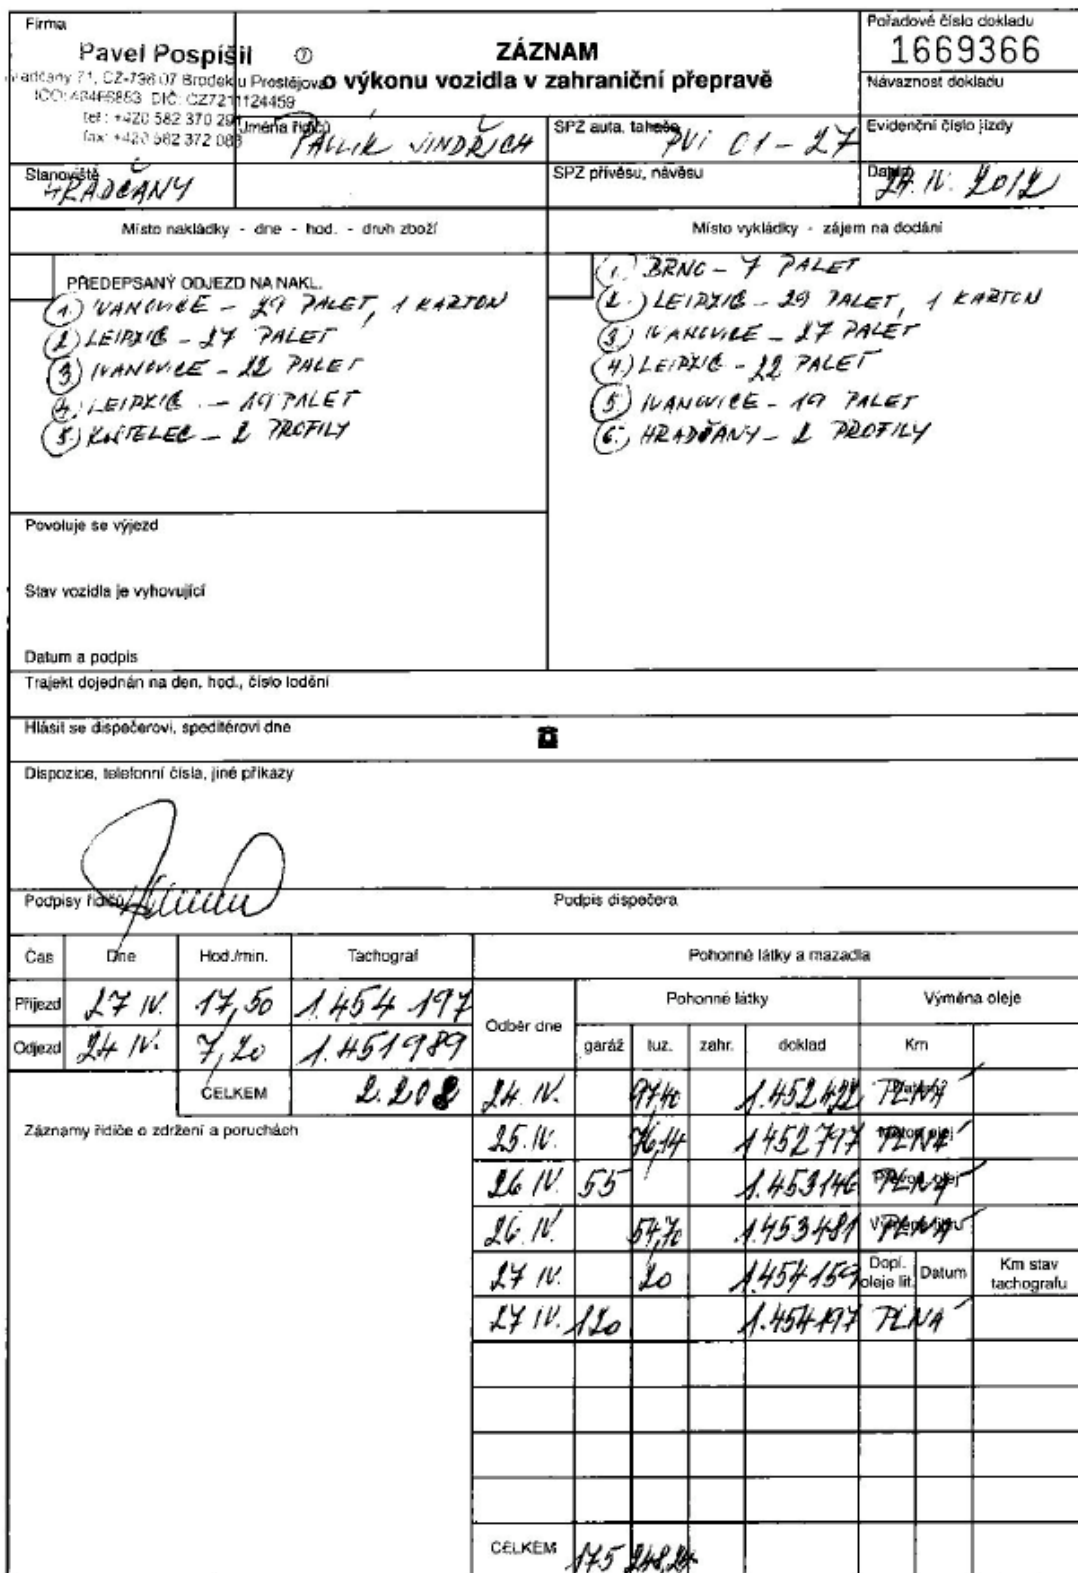 Firma
Pavel Pospíšil
71, CZ-798 07 Brodek u Prostějova
DIČ: CZ7211124459
tel.: +420 582 370 291
fax: +420 582 372 088
ZÁZNAM
o výkonu vozidla v zahraniční přepravě
Pořadové číslo dokladu
1669366
Návaznost dokladu
Jména řidičů
JINDŘICH
SPZ auta, tahače
PVI 01-27
Evidenční číslo jízdy
Stanoviště
HRADČANY
SPZ přívěsu, návěsu
Datum
24. IV. 2012
Místo nakládky - dne - hod. - druh zboží
Místo vykládky - zájem na dodání
PŘEDEPSANÝ ODJEZD NA NAKL.
1.) IVANOVICE - 29 PALET, 1 KARTON
2.) LEIPZIG - 27 PALET
3.) IVANOVICE - 22 PALET
4.) LEIPZIG - 19 PALET
5.) KOSTELEC - 2 PROFILY
1.) BRNO - 7 PALET
2.) LEIPZIG - 29 PALET, 1 KARTON
3.) IVANOVICE - 27 PALET
4.) LEIPZIG - 22 PALET
5.) IVANOVICE - 19 PALET
6.) HRADČANY - 2 PROFILY
Povoluje se výjezd
Stav vozidla je vyhovující
Datum a podpis
Trajekt dojednán na den, hod., číslo lodění
Hlásit se dispečerovi, speditérovi dne
Dispozice, telefonní čísla, jiné příkazy
Podpisy řidičů
Podpis dispečera
Čas Dne Hod./min. Tachograf
Pohonné látky a mazadla
Příjezd 27 IV. 17,50 1.454 197
Odjezd 24 IV. 7,20 1.451989
CELKEM 2.208
Odběr dne
Pohonné látky
Výměna oleje
garáž tuz. zahr. doklad Km
24. IV. 97,40 1.452422 PLNÁ
25. IV. 76,14 1452797 PLNÁ
26 IV. 55 1.453146 PLNÁ
26. IV. 54,70 1.453481 PLNÁ
27 IV. 20 1.454159
Dopl. oleje lit. Datum Km stav tachografu
27 IV. 120 1.454197 PLNÁ
Záznamy řidiče o zdržení a poruchách
CELKEM 175 248,24